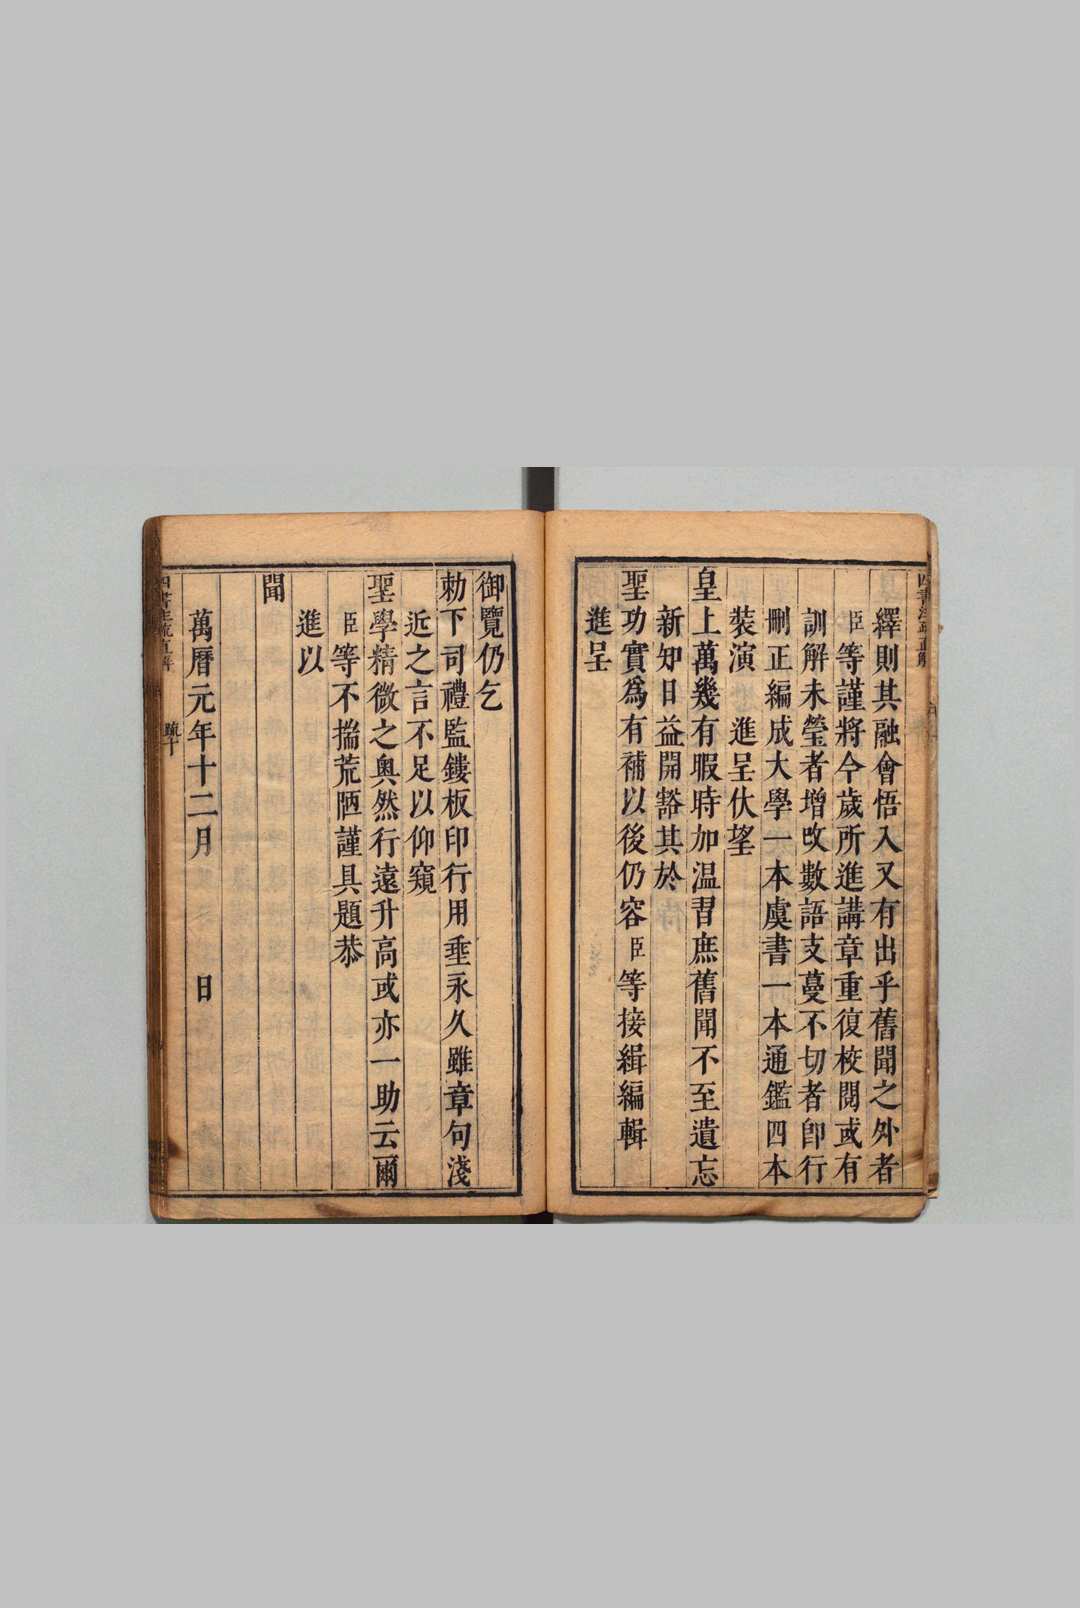 繹則其融會悟入又有出乎舊聞之外者
臣等謹將今歲所進講章重復校閱或有
訓解未瑩者增改數語支蔓不切者即行
刪正編成大學一本虞書一本通鑑四本
裝演進呈伏望
皇上萬幾有暇時加温習庶舊聞不至遺忘
新知日益開豁其於
聖功實爲有補以後仍容臣等接緝編輯
進呈
御覽仍乞
勅下司禮監鏤板印行用垂永久雖章句淺
近之言不足以仰窺
聖學精微之奥然行遠升高或亦一助云爾
臣等不揣荒陋謹具題恭
進以
聞
萬曆元年十二月 日
疏十